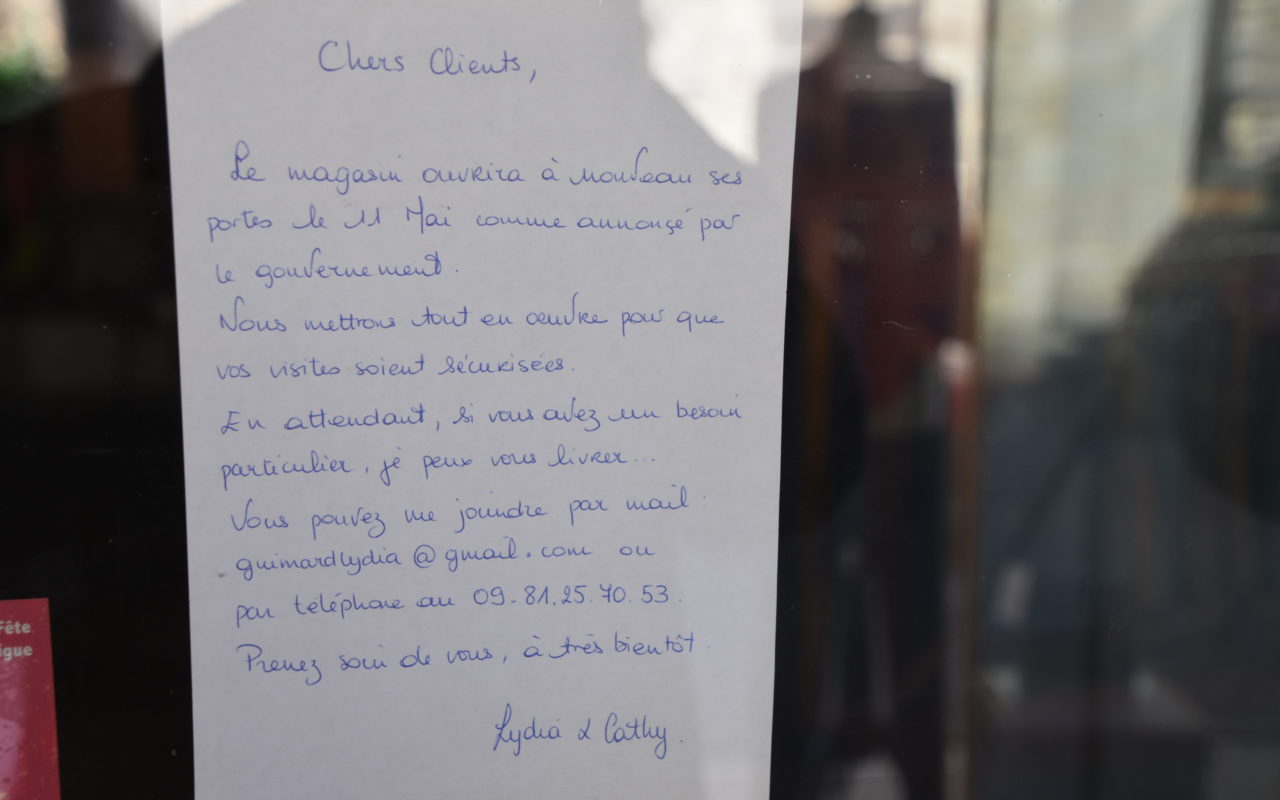 Chers Clients,
Le magasin ouvrira à nouveau ses
portes le 11 Mai comme annonçé par
le gouvernement.
Nous mettrons tout en oeuvre pour que
vos visites soient sécurisées.
En attendant, si vous avez un besoin
particulier, je peux vous livrer...
Vous pouvez me joindre par mail
guimardlydia@gmail.com ou
par téléphone au 09.81.25.70.53.
Prenez soin de vous, à très bientôt.
Lydia & Cathy.
Fête
igue